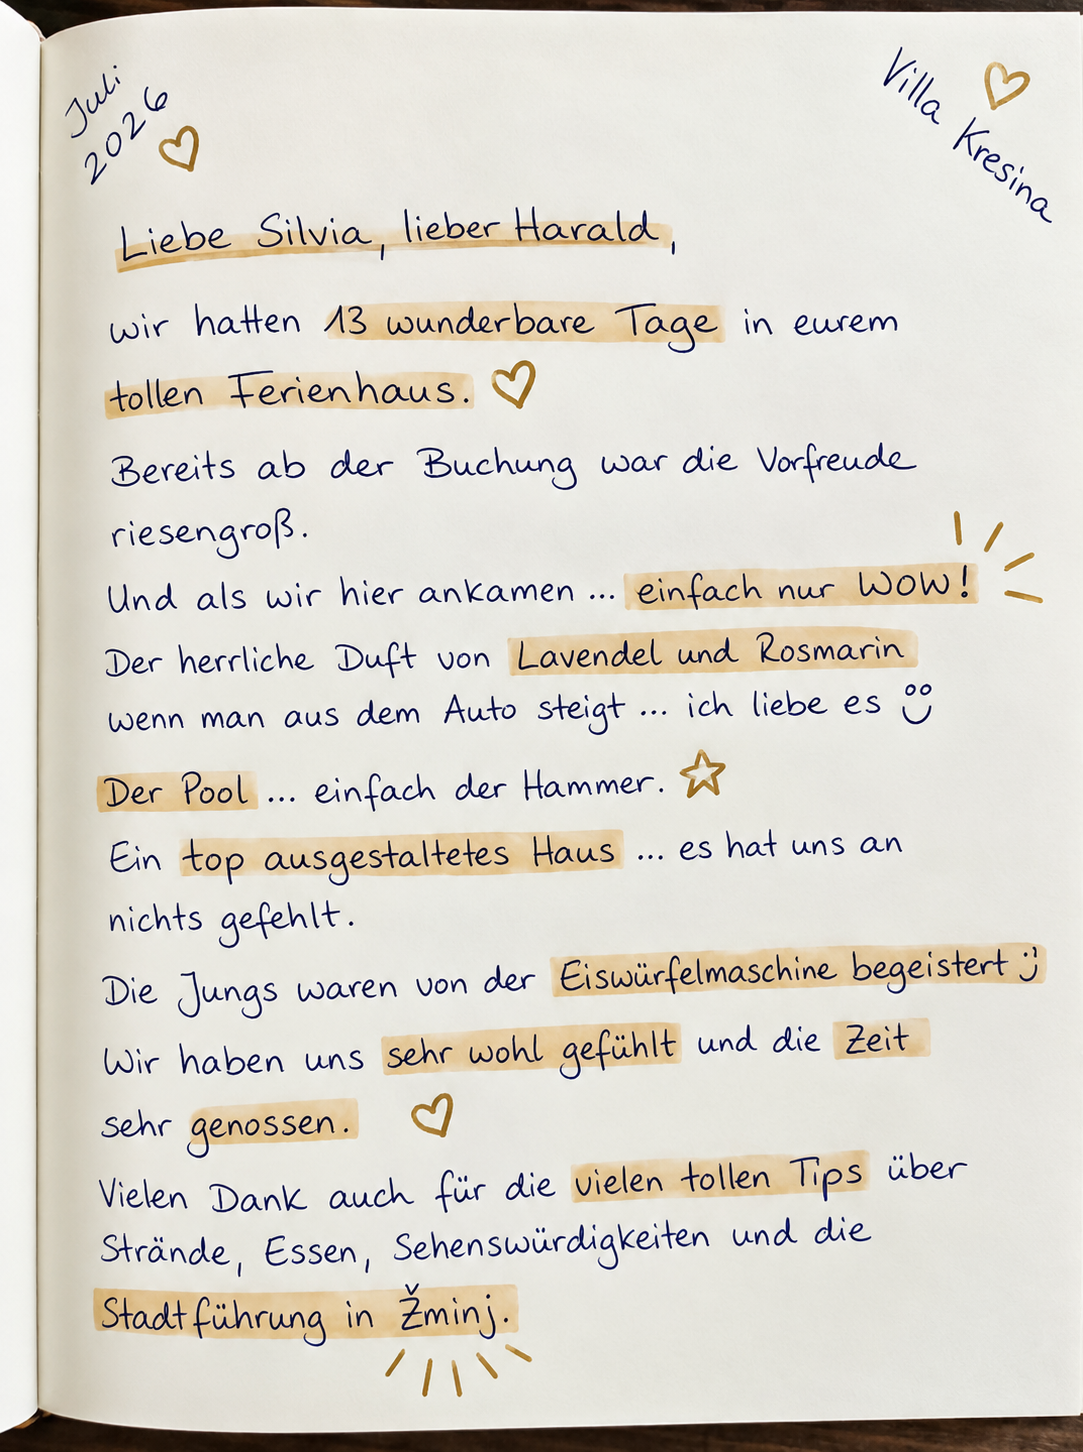 Juli
2026
Villa Kresina
Liebe Silvia, lieber Harald,
wir hatten 13 wunderbare Tage in eurem
tollen Ferienhaus.
Bereits ab der Buchung war die Vorfreude
riesengroß.
Und als wir hier ankamen ... einfach nur WOW!
Der herrliche Duft von Lavendel und Rosmarin
wenn man aus dem Auto steigt ... ich liebe es
Der Pool ... einfach der Hammer.
Ein top ausgestaltetes Haus ... es hat uns an
nichts gefehlt.
Die Jungs waren von der Eiswürfelmaschine begeistert ;)
Wir haben uns sehr wohl gefühlt und die Zeit
sehr genossen.
Vielen Dank auch für die vielen tollen Tips über
Strände, Essen, Sehenswürdigkeiten und die
Stadtführung in Žminj.